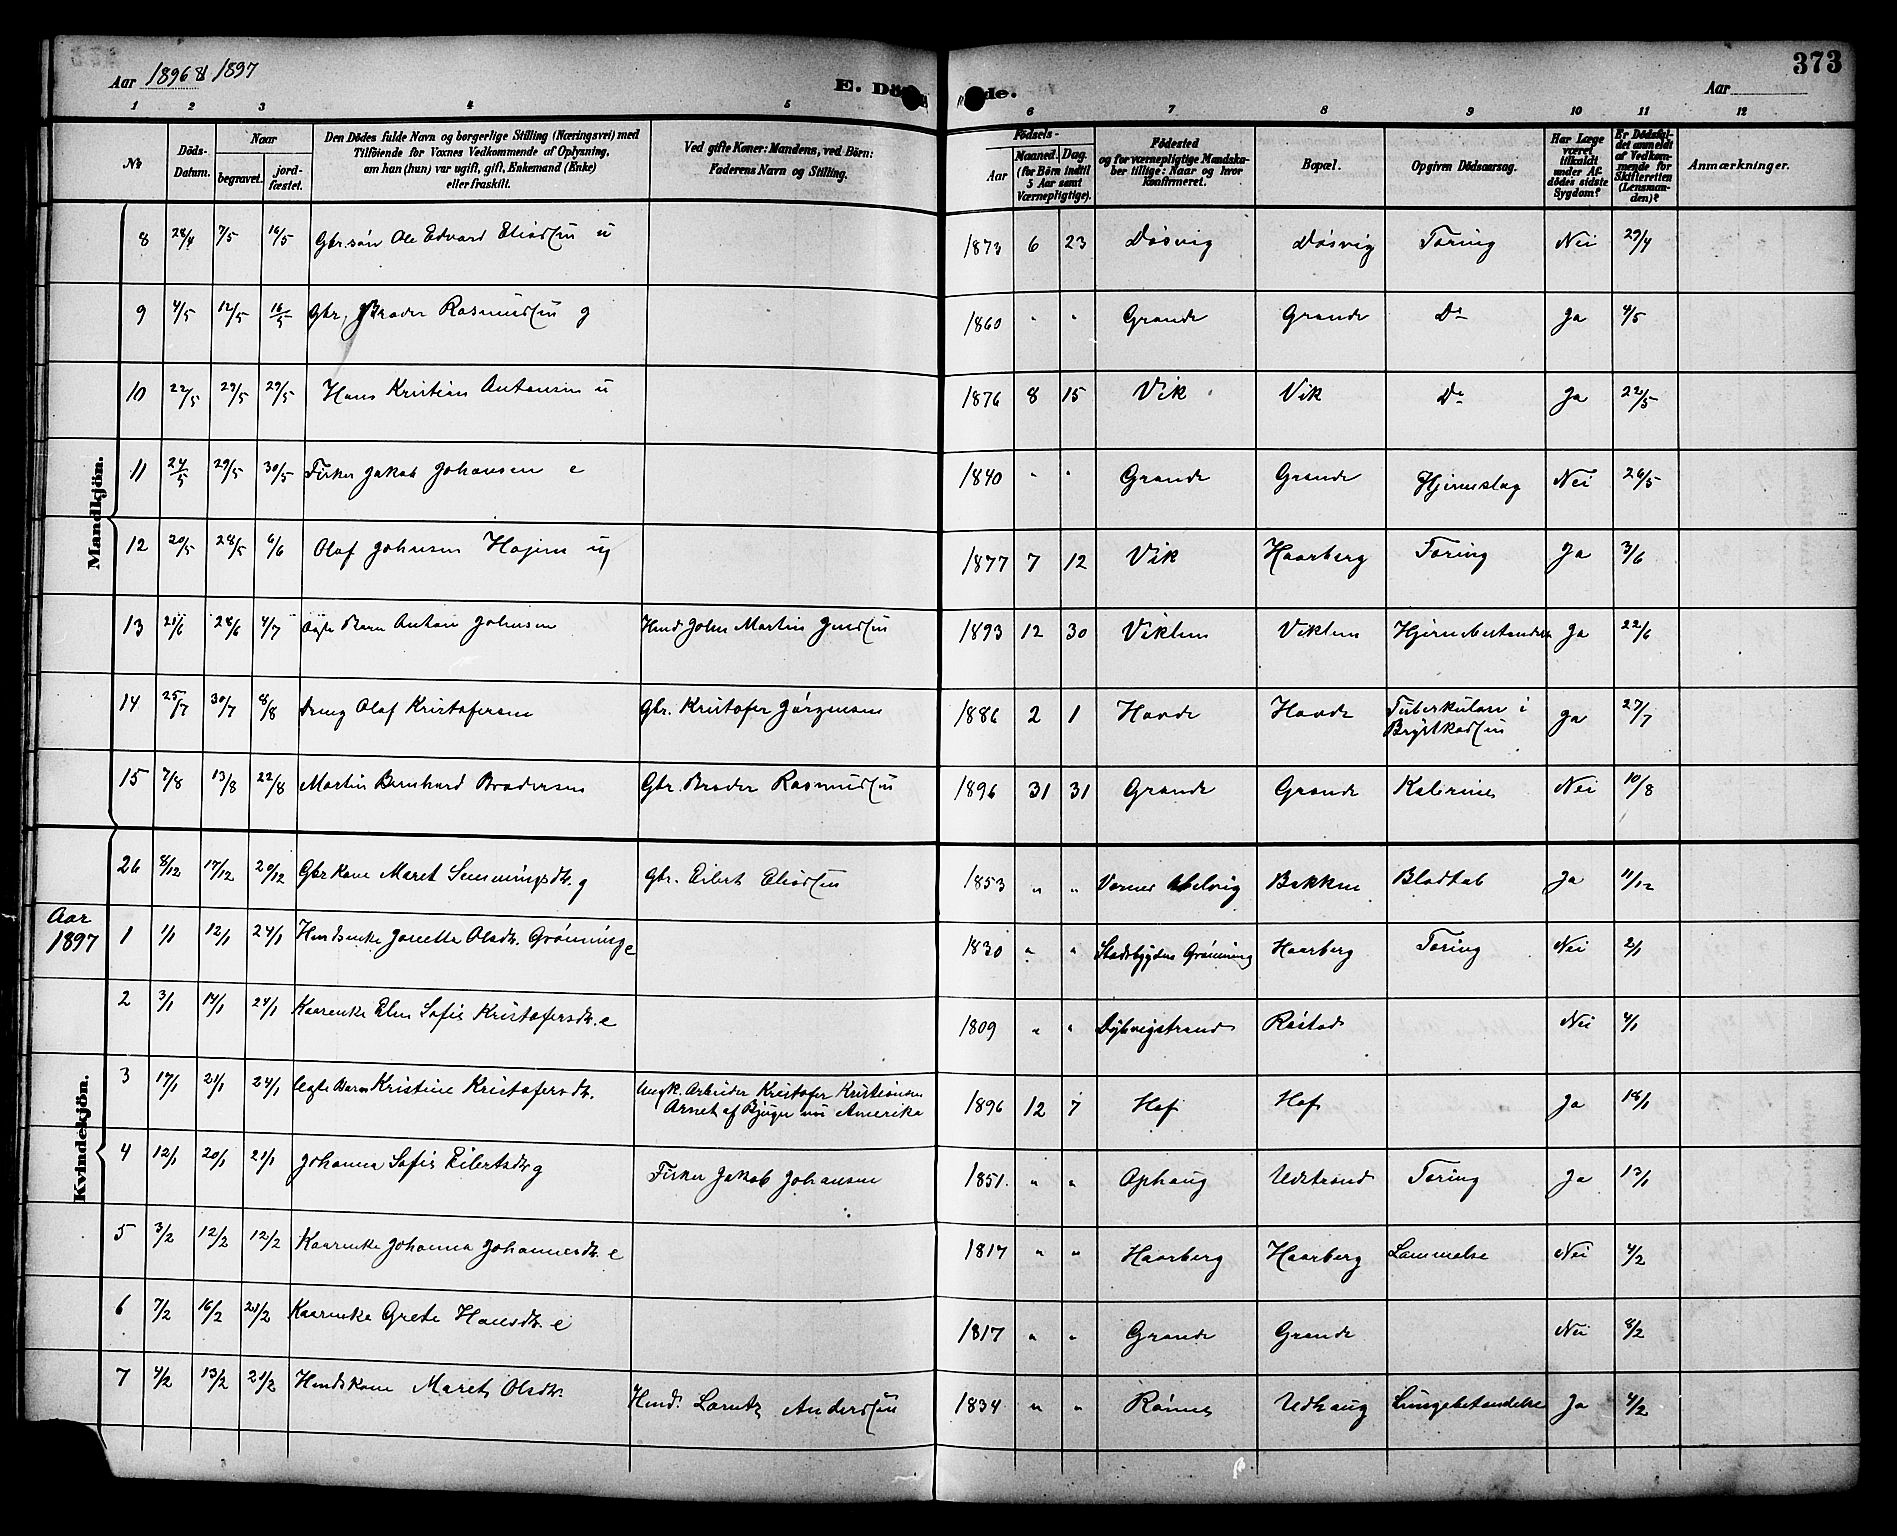 Aar 1896 & 1897 E. Dö de. Aar 373
1 2 3 4 5 6 7 8 9 10 11 12
No Döds-Datum. Naar begravet. jord-fæstet. Den Dödes fulde Navn og borgerlige Stilling (Næringsvei) med Tilföiende for Voxnes Vedkommende af Oplysning, om han (hun) var ugift, gift, Enkemand (Enke) eller fraskilt. Ved gifte Koner: Mandens, ved Börn: Faderens Navn og Stilling. Födsels- Aar Maaned. Dag. (for Börn indtil 5 Aar samt Værnepligtige). Födested og for værnepligtige Mandskaber tillige: Naar og hvor Konfirmeret. Bopæl. Opgiven Dödsaarsag. Har Læge været tilkaldt under Afdödes sidste Sygdom? Er Dödsfaldet anmeldt af Vedkommende for Skifteretten (Lensmanden)? Anmærkninger.
Mandkjön.
8 28/4 7/5 16/5 Gbr.søn Ole Edvard Eliassen u 1873 6 23 Døsvig Døsvig Tæring Nei 29/4
9 4/5 12/5 16/5 Gbr. Brader Rasmussen g 1860 " " Grande Grande Do Ja 4/5
10 22/5 29/5 29/5 Hans Kristian Antonsen u 1876 8 15 Vik Vik Do Ja 22/5
11 24/5 29/5 30/5 Fisker Jakob Johansen e 1840 " " Grande Grande Hjerneslag Nei 26/5
12 20/5 28/5 6/6 Olaf Johnsen ug 1877 7 12 Vik Haarberg Tæring Ja 3/6
13 21/6 28/6 4/7 Ægte Barn Anton Johnsen Hmd. John Martin Jensen 1893 12 30 Viklem Viklem Hjernebetændelse Ja 22/6
14 25/7 30/7 8/8 Dreng Olaf Kristofersen Gbr. Kristofer Jørgensen 1886 2 1 Hovde Hovde Tuberkulose i Ja 27/7
Brystkassen
15 7/8 13/8 22/8 Martin Bernhard Bradersen Gbr. Brader Rasmussen 1896 31 31 Grande Grande Kolerine Nei 10/8
Kvindekjön.
26 8/12 17/12 20/12 Gbrkone Maret Semmingsdtr. g Gbr. Eilert Eliassen 1853 " " Bakken Blodtab Ja 11/12
Aar
1897 1 1/1 12/1 24/1 Hmdsenke Jonetta Olsdtr. Grønning e 1830 " " Stadsbygden Grønning Haarberg Tæring Nei 2/1
2 3/1 14/1 24/1 Kaarenke Elen Sofie Kristofersdtr. e 1809 " " Døsvigstrand Røstad Nei 4/1
3 17/1 21/1 24/1 Uægte Barn Kristine Kristofersdtr. Ungk. Arbeider Kristofer Kristiansen 1896 12 7 Hof Hof Ja 18/1
Arnet af Bjugn nu Amerika
4 12/1 20/1 21/1 Johanna Sofie Eilertsdtr g Fisker Jakob Johansen 1851. " " Ophaug Udstrand Tæring Ja 13/1
5 3/2 12/2 12/2 Kaarenke Johanna Johannesdtr. e 1817 " " Haarberg Haarberg Lammelse Nei 4/2
6 7/2 16/2 21/2 Kaarenke Grete Hansdtr. e 1817 " " Grande Grande Nei 8/2
7 4/2 13/2 21/2 Hmdskone Maret Olsdtr. Hmd. Lorentz Anderssen 1834 " " Rønne Udhaug Lungebetændelse Ja 4/2